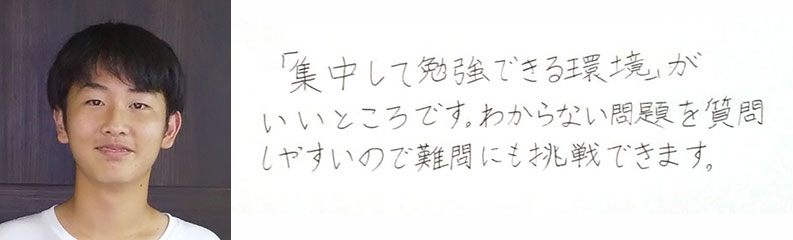 「集中して勉強できる環境」が
いいところです。わからない問題を質問
しやすいので難問にも挑戦できます。